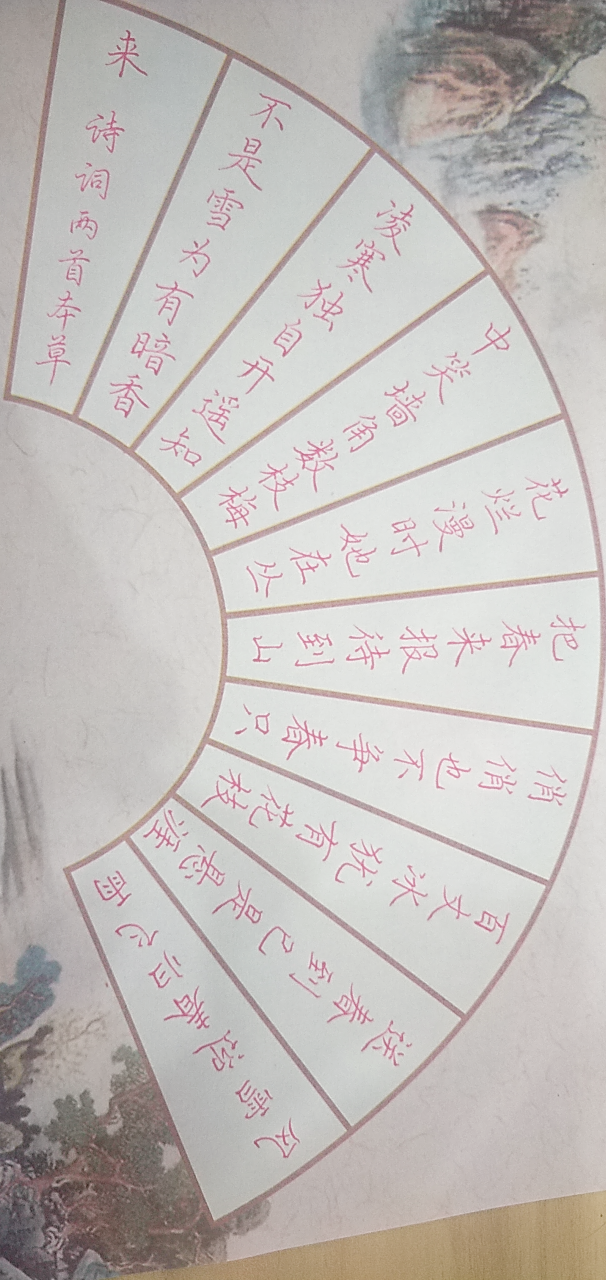 风雨送春归飞雪
迎春到已是悬崖
百丈冰犹有花枝
俏俏也不争春只
把春来报待到山
花烂漫时她在丛
中笑墙角数枝梅
凌寒独自开遥知
不是雪为有暗香
来 诗词两首夲草